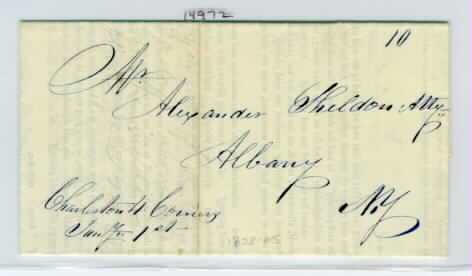 14972
10
Mr.
Alexander Sheldon Atty
Albany
Charleston 4 Corners
N.Y
Jany 1st
1828-45